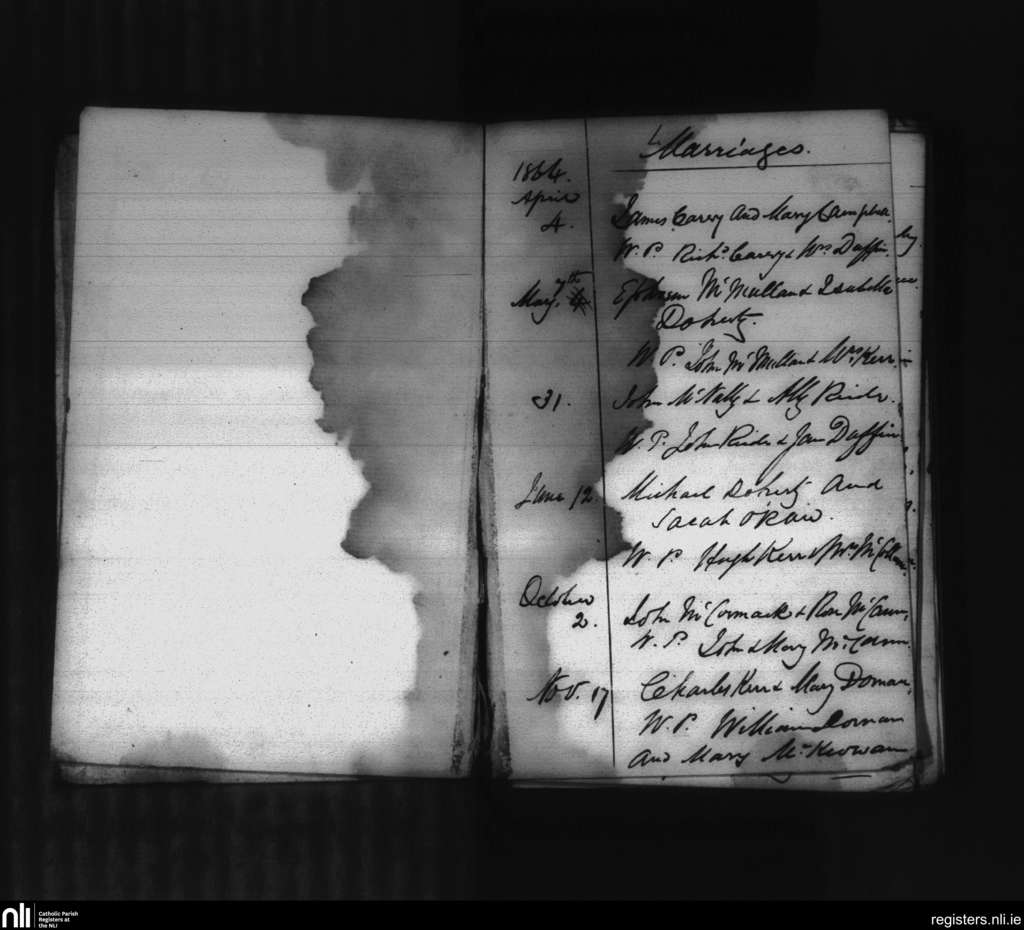 Marriages.
1864.
April
4. James Carey and Mary Campbell
W. P. Richd. Carey & Wm Duffin.
May 7th Ephraim McMullan & Isabella
Doherty.
W. P. John McMullan & Kerr
31. John McNally & Ally Reide.
W. P. John Reide & Jane Duffin
June 12. Michael Doherty and
Sarah O'Kane.
W. P. Hugh Kerr & McCollum
October
2. John McCormack & Rose McCann,
W. P. John & Mary McCann
Nov. 17 Charles Kerr & Mary Dornan,
W. P. William Dornan
and Mary McKeowan
nli
Catholic Parish
Registers at
the NLI
registers.nli.ie